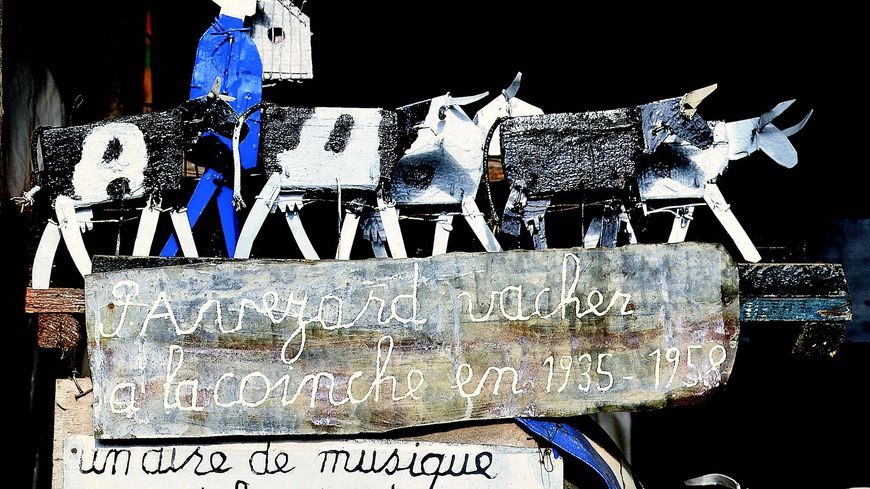 P. Avezard vacher
a' la coinche en 1935-1958
un aire de musique